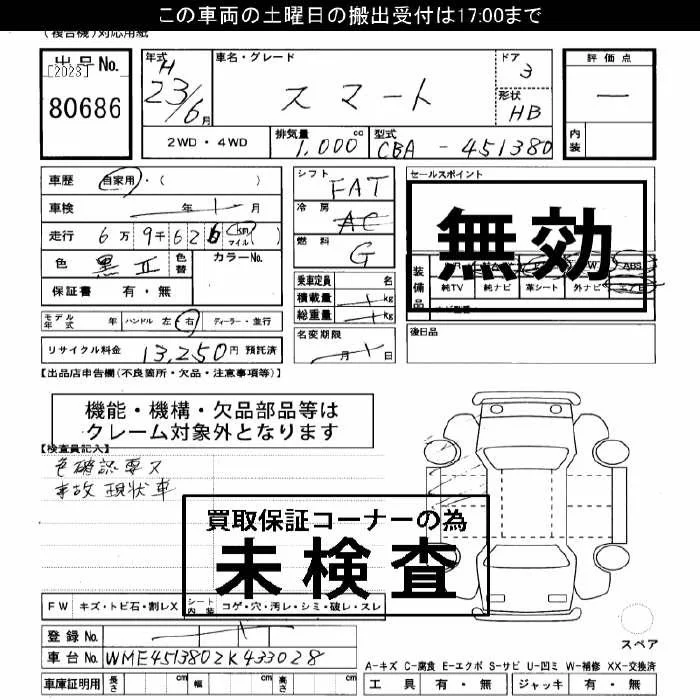 この車両の土曜日の搬出受付は17:00まで
(複合機)対応用紙
出品No. [2023] 80686
年式 H 23/6月
車名・グレード スマート
ドア 3
形状 HB
評価点 —
内装
2WD・4WD
排気量 1,000 cc
型式 CBA - 451380
車歴 自家用・( )
車検 年 月
走行 6万9千626 km マイル ( )
色 黒II 色替 カラーNo.
保証書 有・無
モデル年式 年 ハンドル 左 右 ディーラー・並行
リサイクル料金 13,250円 預託済
シフト FAT
冷房 AC
燃料 G
乗車定員 名
積載量 kg
総重量 kg
名変期限 月 日
セールスポイント
無効
装備品 ABS
純TV 純ナビ 革シート 外ナビ エアB
後日品
【出品店申告欄(不良箇所・欠品・注意事項等)】
機能・機構・欠品部品等は
クレーム対象外となります
【検査員記入】
色確認要ス
事故現状車
買取保証コーナーの為
未検査
FW キズ・トビ石・割レX シート内装 コゲ・穴・汚レ・シミ・破レ・スレ
登録No.
車台No. WME4513802K433028
車庫証明用 長さ cm 幅 cm 高さ cm
スペア
A-キズ C-腐食 E-エクボ S-サビ U-凹ミ W-補修 XX-交換済
工具 有・無 ジャッキ 有・無